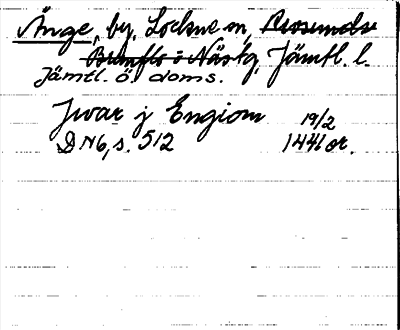 Änge, by, Lockne sn, Revsunds
Brunflo o Näskg, Jämtl. l.
Jämtl. ö. doms.
Jwar j Engiom 19/2
DN6, s. 512 1446 or.